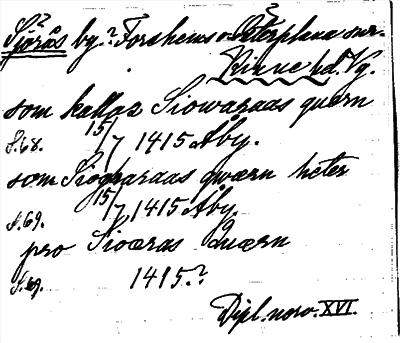 Sjörås by.? Forshems o. Österplana snr.
Kinne hd. Vg.
som kallaz Siowaraas quærn
S. 68. 15/7 1415 Åby.
som Siogharaas qwærn heter
S. 69. 15/7 1415 Åby.
pro Sioæras Quærn
S. 69. 1415.?
Dipl. norv. XVI.